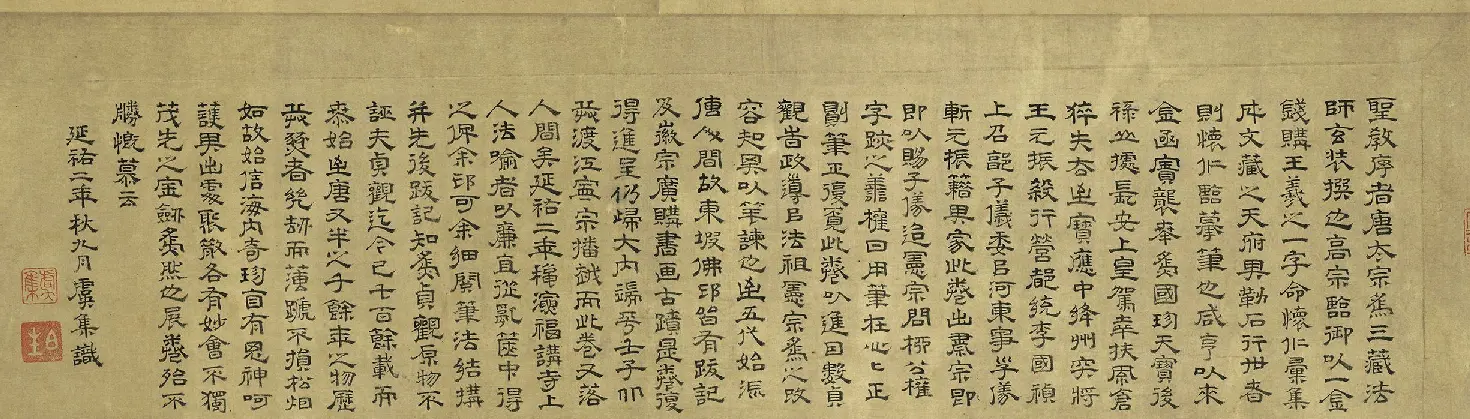 聖教序者唐太宗為三藏法
師玄奘撰也高宗臨御以一金
錢購王羲之一字命懷仁彙集
成文藏之天府其勒石行世者
則懷仁臨摹筆也咸亨以來
金函寶襲舉為國珍天寶後
祿山據長安上皇駕幸扶風倉
猝失去至寶應中絳州突將
王元振殺行營都統李國禎
上召郭子儀委以河東事子儀
斬元振籍其家此卷出肅宗即
即以賜子儀迨憲宗問柳公權
字跡之善權曰用筆在心心正
則筆正復覓此卷以進且數貞
觀時政導以法祖憲宗為之改
容起果以筆諫也至五代始流
傳人間故東坡佛印皆有跋記
及徽宗廣購書画古蹟是卷復
得進呈仍歸大內端平壬子
為渡江寧宗播越而此卷又落
人間矣延祐二年穐演福講寺上
人法喻者以廉直從亂篋中得
之俾余印可余細閱筆法結搆
并先後跋記知為貞觀原物不
誣夫貞觀迄今已千百餘載而
泰始至唐又半之千餘年之物歷
者幾劫而不損松烟
如故始信海內奇珍自有鬼神呵
護其出處聚散各有妙會不獨
茂先之寶劍為然也展卷殆不
勝懷慕云
延祐二年秋九月虞集識
虞集
伯生